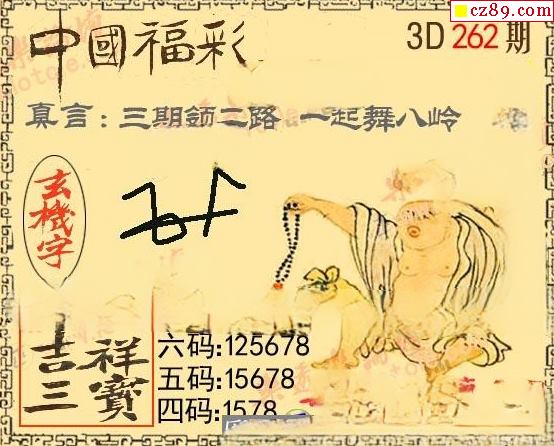 cz89.com
中國福彩
3D 262 期
真言：三期领二路 一起舞八岭
玄機字
吉祥三寳
六码:125678
五码:15678
四码:1578